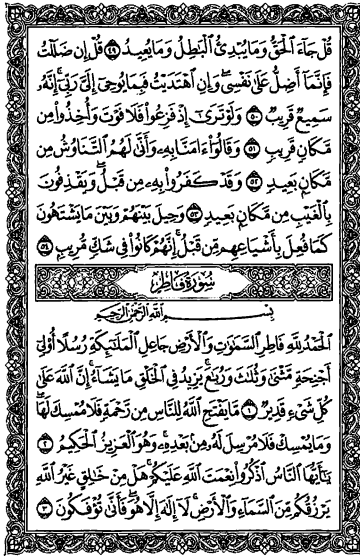 قُلْ جَآءَ ٱلْحَقُّ وَمَا يُبْدِئُ ٱلْبَٰطِلُ وَمَا يُعِيدُ ٤٩ قُلْ إِن ضَلَلْتُ
فَإِنَّمَآ أَضِلُّ عَلَىٰ نَفْسِى وَإِنِ ٱهْتَدَيْتُ فَبِمَا يُوحِىٓ إِلَىَّ رَبِّىٓ إِنَّهُۥ
سَمِيعٌ قَرِيبٌ ٥٠ وَلَوْ تَرَىٰٓ إِذْ فَزِعُوا۟ فَلَا فَوْتَ وَأُخِذُوا۟ مِن
مَّكَانٍ قَرِيبٍ ٥١ وَقَالُوٓا۟ ءَامَنَّا بِهِۦ وَأَنَّىٰ لَهُمُ ٱلتَّنَاوُشُ مِن
مَّكَانٍۭ بَعِيدٍ ٥٢ وَقَدْ كَفَرُوا۟ بِهِۦ مِن قَبْلُ ۖ وَيَقْذِفُونَ
بِٱلْغَيْبِ مِن مَّكَانٍۭ بَعِيدٍ ٥٣ وَحِيلَ بَيْنَهُمْ وَبَيْنَ مَا يَشْتَهُونَ
كَمَا فُعِلَ بِأَشْيَاعِهِم مِّن قَبْلُ ۚ إِنَّهُمْ كَانُوا۟ فِى شَكٍّ مُّرِيبٍۭ ٥٤
سُورَةُ فَاطِرٍ
بِسْمِ ٱللَّهِ ٱلرَّحْمَٰنِ ٱلرَّحِيمِ
ٱلْحَمْدُ لِلَّهِ فَاطِرِ ٱلسَّمَٰوَٰتِ وَٱلْأَرْضِ جَاعِلِ ٱلْمَلَٰٓئِكَةِ رُسُلًا أُو۟لِىٓ
أَجْنِحَةٍ مَّثْنَىٰ وَثُلَٰثَ وَرُبَٰعَ ۚ يَزِيدُ فِى ٱلْخَلْقِ مَا يَشَآءُ ۚ إِنَّ ٱللَّهَ عَلَىٰ
كُلِّ شَىْءٍ قَدِيرٌ ١ مَّا يَفْتَحِ ٱللَّهُ لِلنَّاسِ مِن رَّحْمَةٍ فَلَا مُمْسِكَ لَهَا ۖ
وَمَا يُمْسِكْ فَلَا مُرْسِلَ لَهُۥ مِنۢ بَعْدِهِۦ ۚ وَهُوَ ٱلْعَزِيزُ ٱلْحَكِيمُ ٢
يَٰٓأَيُّهَا ٱلنَّاسُ ٱذْكُرُوا۟ نِعْمَتَ ٱللَّهِ عَلَيْكُمْ ۚ هَلْ مِنْ خَٰلِقٍ غَيْرُ ٱللَّهِ
يَرْزُقُكُم مِّنَ ٱلسَّمَآءِ وَٱلْأَرْضِ ۚ لَآ إِلَٰهَ إِلَّا هُوَ ۖ فَأَنَّىٰ تُؤْفَكُونَ ٣